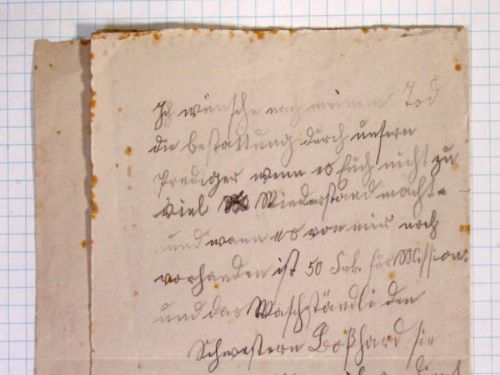 Ich wünsche nach meinem Tod
die bestattung durch unsern
Prediger wenn es Euch nicht zu
viel Wiederstand macht.
und wann es von mir noch
vorhanden ist 50 Frk. für Mission.
und das Waschständli den
Schwestern Boßhard sie